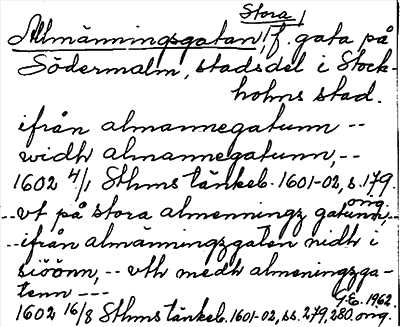 Stora
Allmänningsgatan, f. gata på
Södermalm, stadsdel i Stock-
holms stad.
ifrån almannegatunn --
widh almannegatunn, --
1602 4/1 Sthms tänkeb. 1601-02, s. 179.
orig.
-- vt på stora almenningz gatunn, --
-- ifrån almänningzgaten nidh i
siöönn, -- vth medh almeningzga-
tenn ---
G. Eo. 1962.
1602 16/8 Sthms tänkeb. 1601-02, ss. 279, 280. orig.